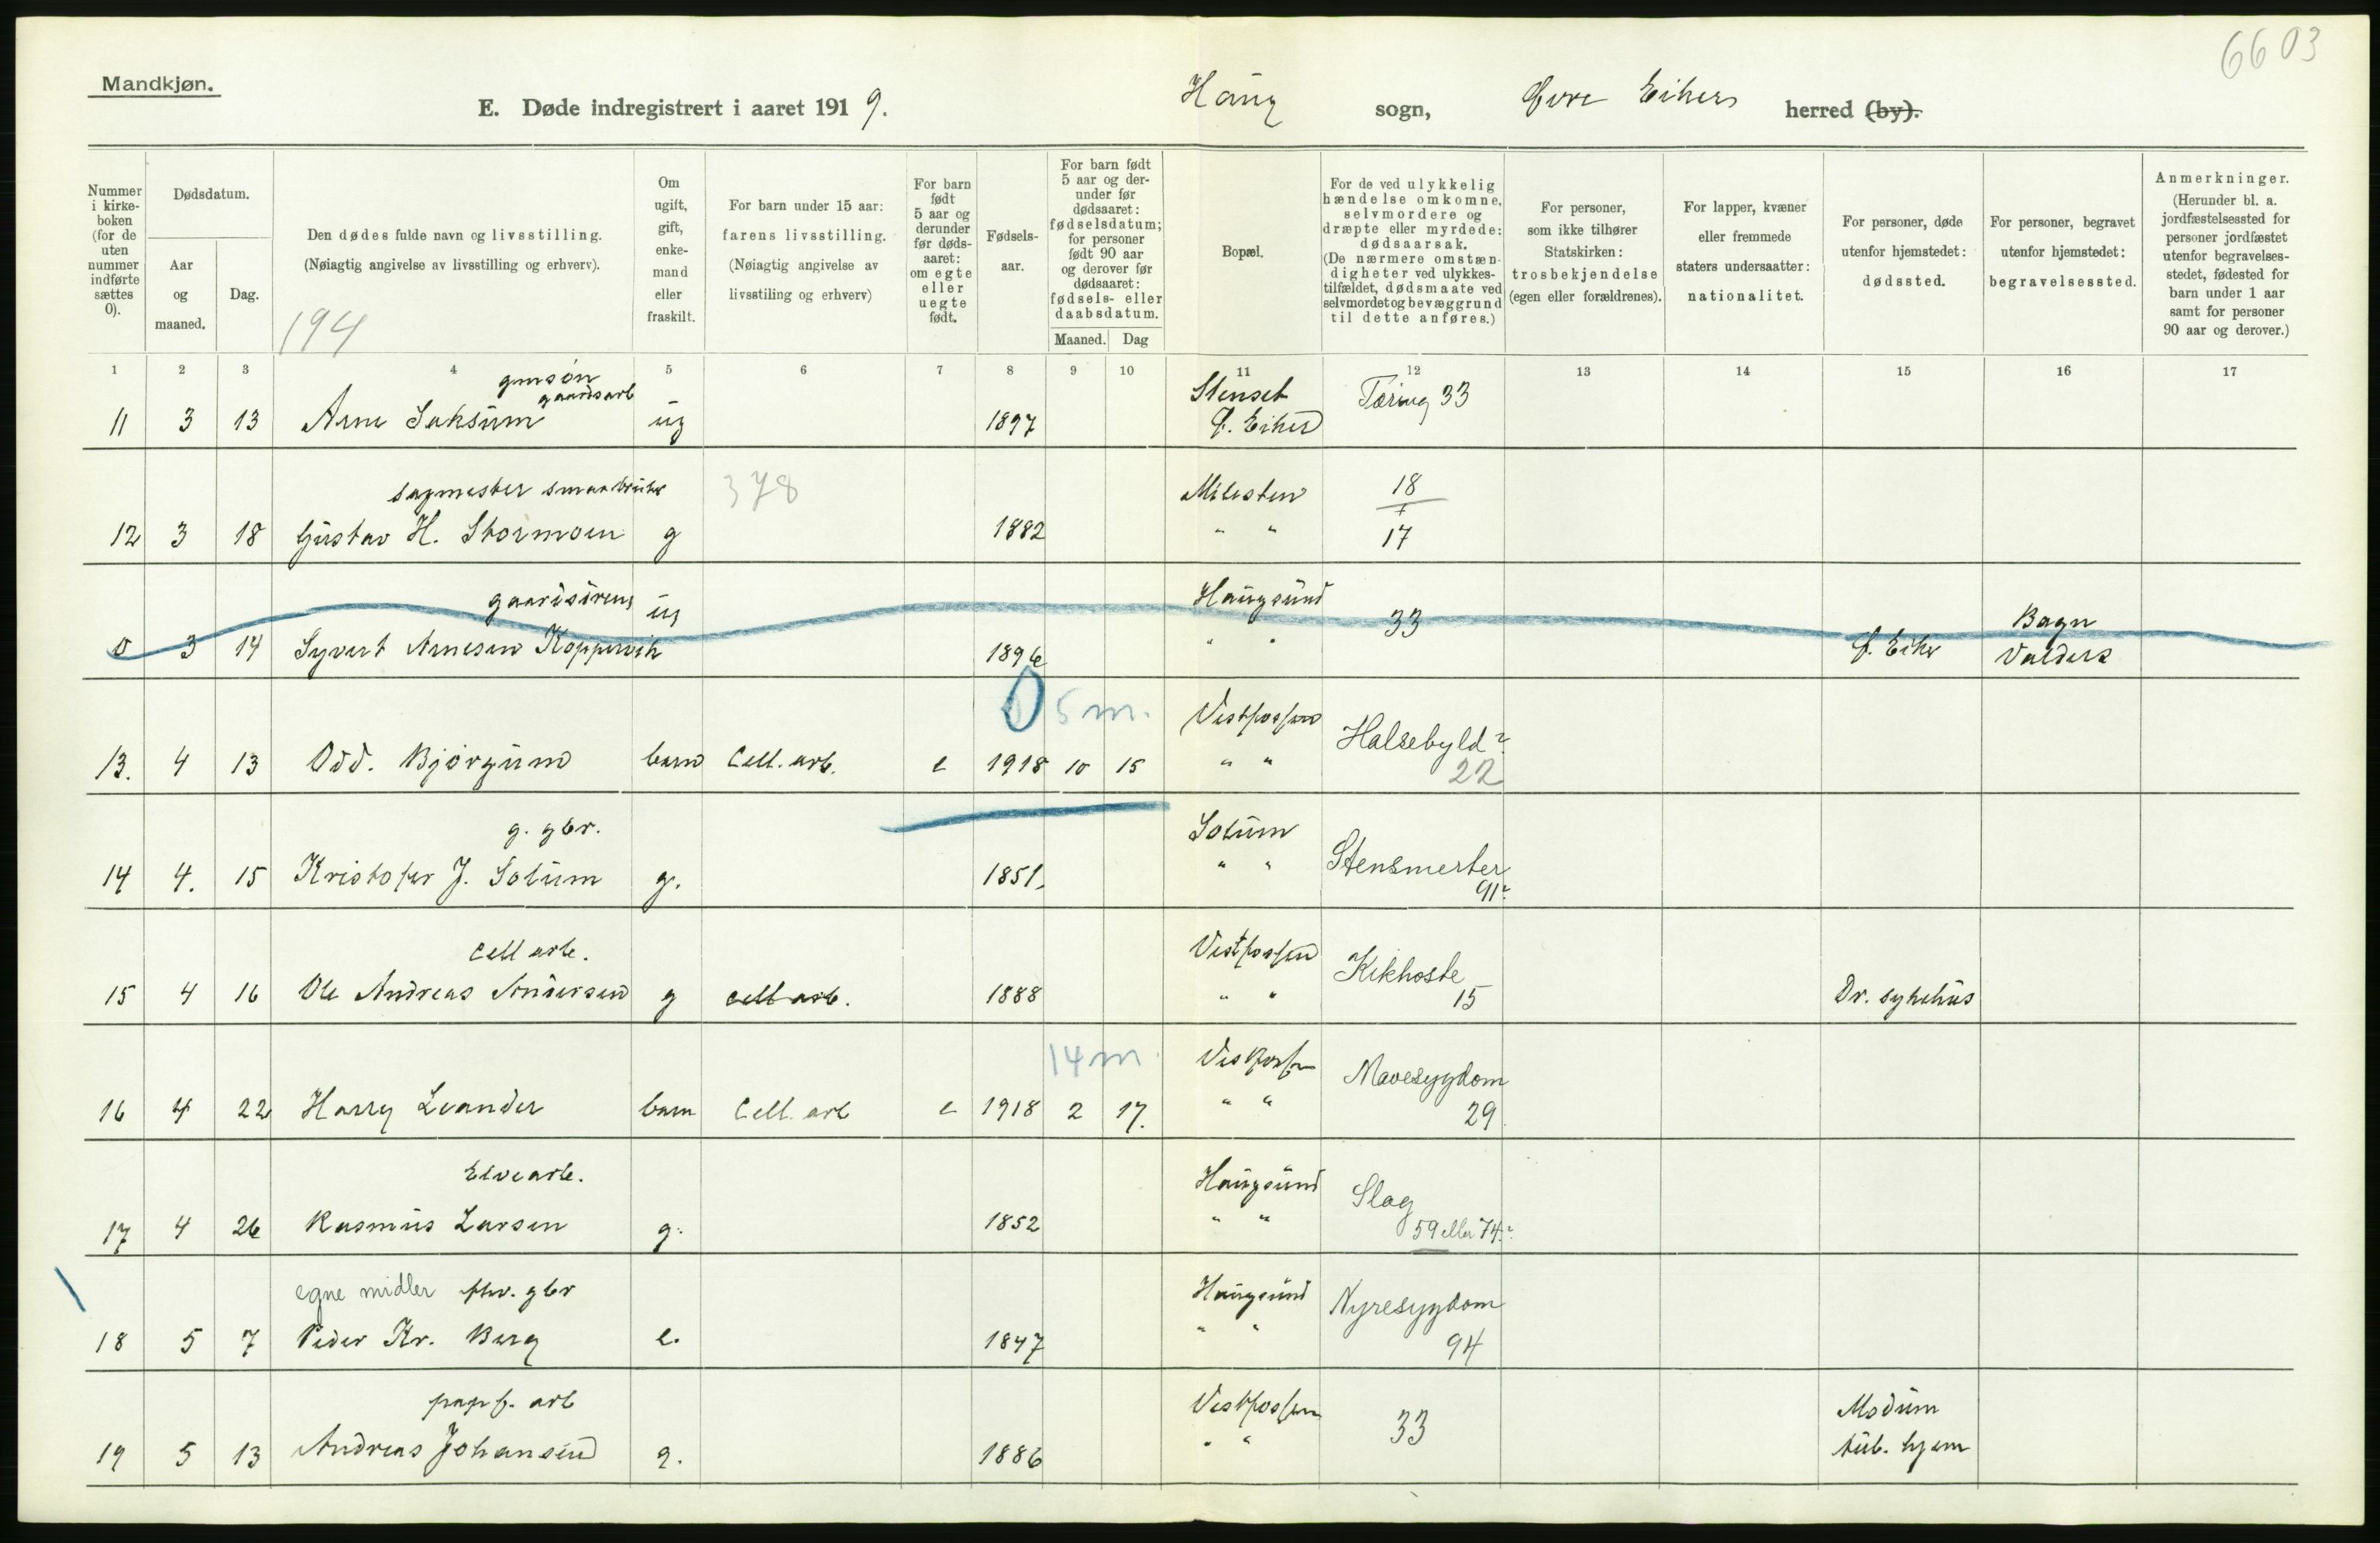 6603
Mandkjøn.
E. Døde indregistrert i aaret 1919. Haug sogn, Øvre Eiker herred (by).
Nummer i kirkeboken (for de uten nummer indførte sættes 0).
Dødsdatum.
Aar og maaned.
Dag.
Den dødes fulde navn og livsstilling.
(Nøiagtig angivelse av livsstilling og erhverv).
194
Om ugift, gift, enkemand eller fraskilt.
For barn under 15 aar: farens livsstilling.
(Nøiagtig angivelse av livsstiling og erhverv)
For barn født 5 aar og derunder før dødsaaret: om egte eller uegte født.
Fødselsaar.
For barn født 5 aar og derunder før dødsaaret: fødselsdatum; for personer født 90 aar og derover før dødsaaret: fødsels- eller daabsdatum.
Maaned. Dag
Bopæl.
For de ved ulykkelig hændelse omkomne, selvmordere og dræpte eller myrdede: dødsaarsak.
(De nærmere omstændigheter ved ulykkestilfældet, dødsmaate ved selvmordet og bevæggrund til dette anføres.)
For personer, som ikke tilhører Statskirken: trosbekjendelse (egen eller forældrenes).
For lapper, kvæner eller fremmede staters undersaatter: nationalitet.
For personer, døde utenfor hjemstedet: dødssted.
For personer, begravet utenfor hjemstedet: begravelsessted.
Anmerkninger.
(Herunder bl. a. jordfæstelsessted for personer jordfæstet utenfor begravelsesstedet, fødested for barn under 1 aar samt for personer 90 aar og derover.)
1 2 3 4 5 6 7 8 9 10 11 12 13 14 15 16 17
gmsøn gaardsarb Stenset Tæring 33
11 3 13 Arne Saksum ug 1897 Ø. Eiker
sagmester smaabruker 378 Milesten 18
12 3 18 Gustav H. Stormoen g 1882 " " + 17
gaardsdreng ug Haugsund 33 Bagn
0 3 14 Syvert Arnesen Koppervik 1896 " " Ø. Eiker Valders
0 5 m. Vestfossen Halsebyld?
13. 4 13 Odd. Bjørgum barn Cell. arb. e 1918 10 15 " " 22
g. gbr. Solum Stensmerter
14 4. 15 Kristofer J. Solum g. 1851. " " 91?
Cell arb. Vestfossen Kikhoste
15 4 16 Ole Andreas Andersen g cell arb. 1888 " " 15 Dr. sykehus
14 m. Vestfossen Mavesygdom
16 4 22 Harry Leander barn Cell. arb e 1918 2 17. " " 29
Elvearb. Haugsund Slag
17 4 26 Rasmus Larsen g. 1852 " " 59 eller 74?
egne midler fhv. gbr Haugsund Nyresygdom
18 5 7 Peder Kr. Berg e. 1847 " " 94
papf. arb Vestfossen 33 Modum
19 5 13 Andreas Johansen g. 1886 " " tub. hjem